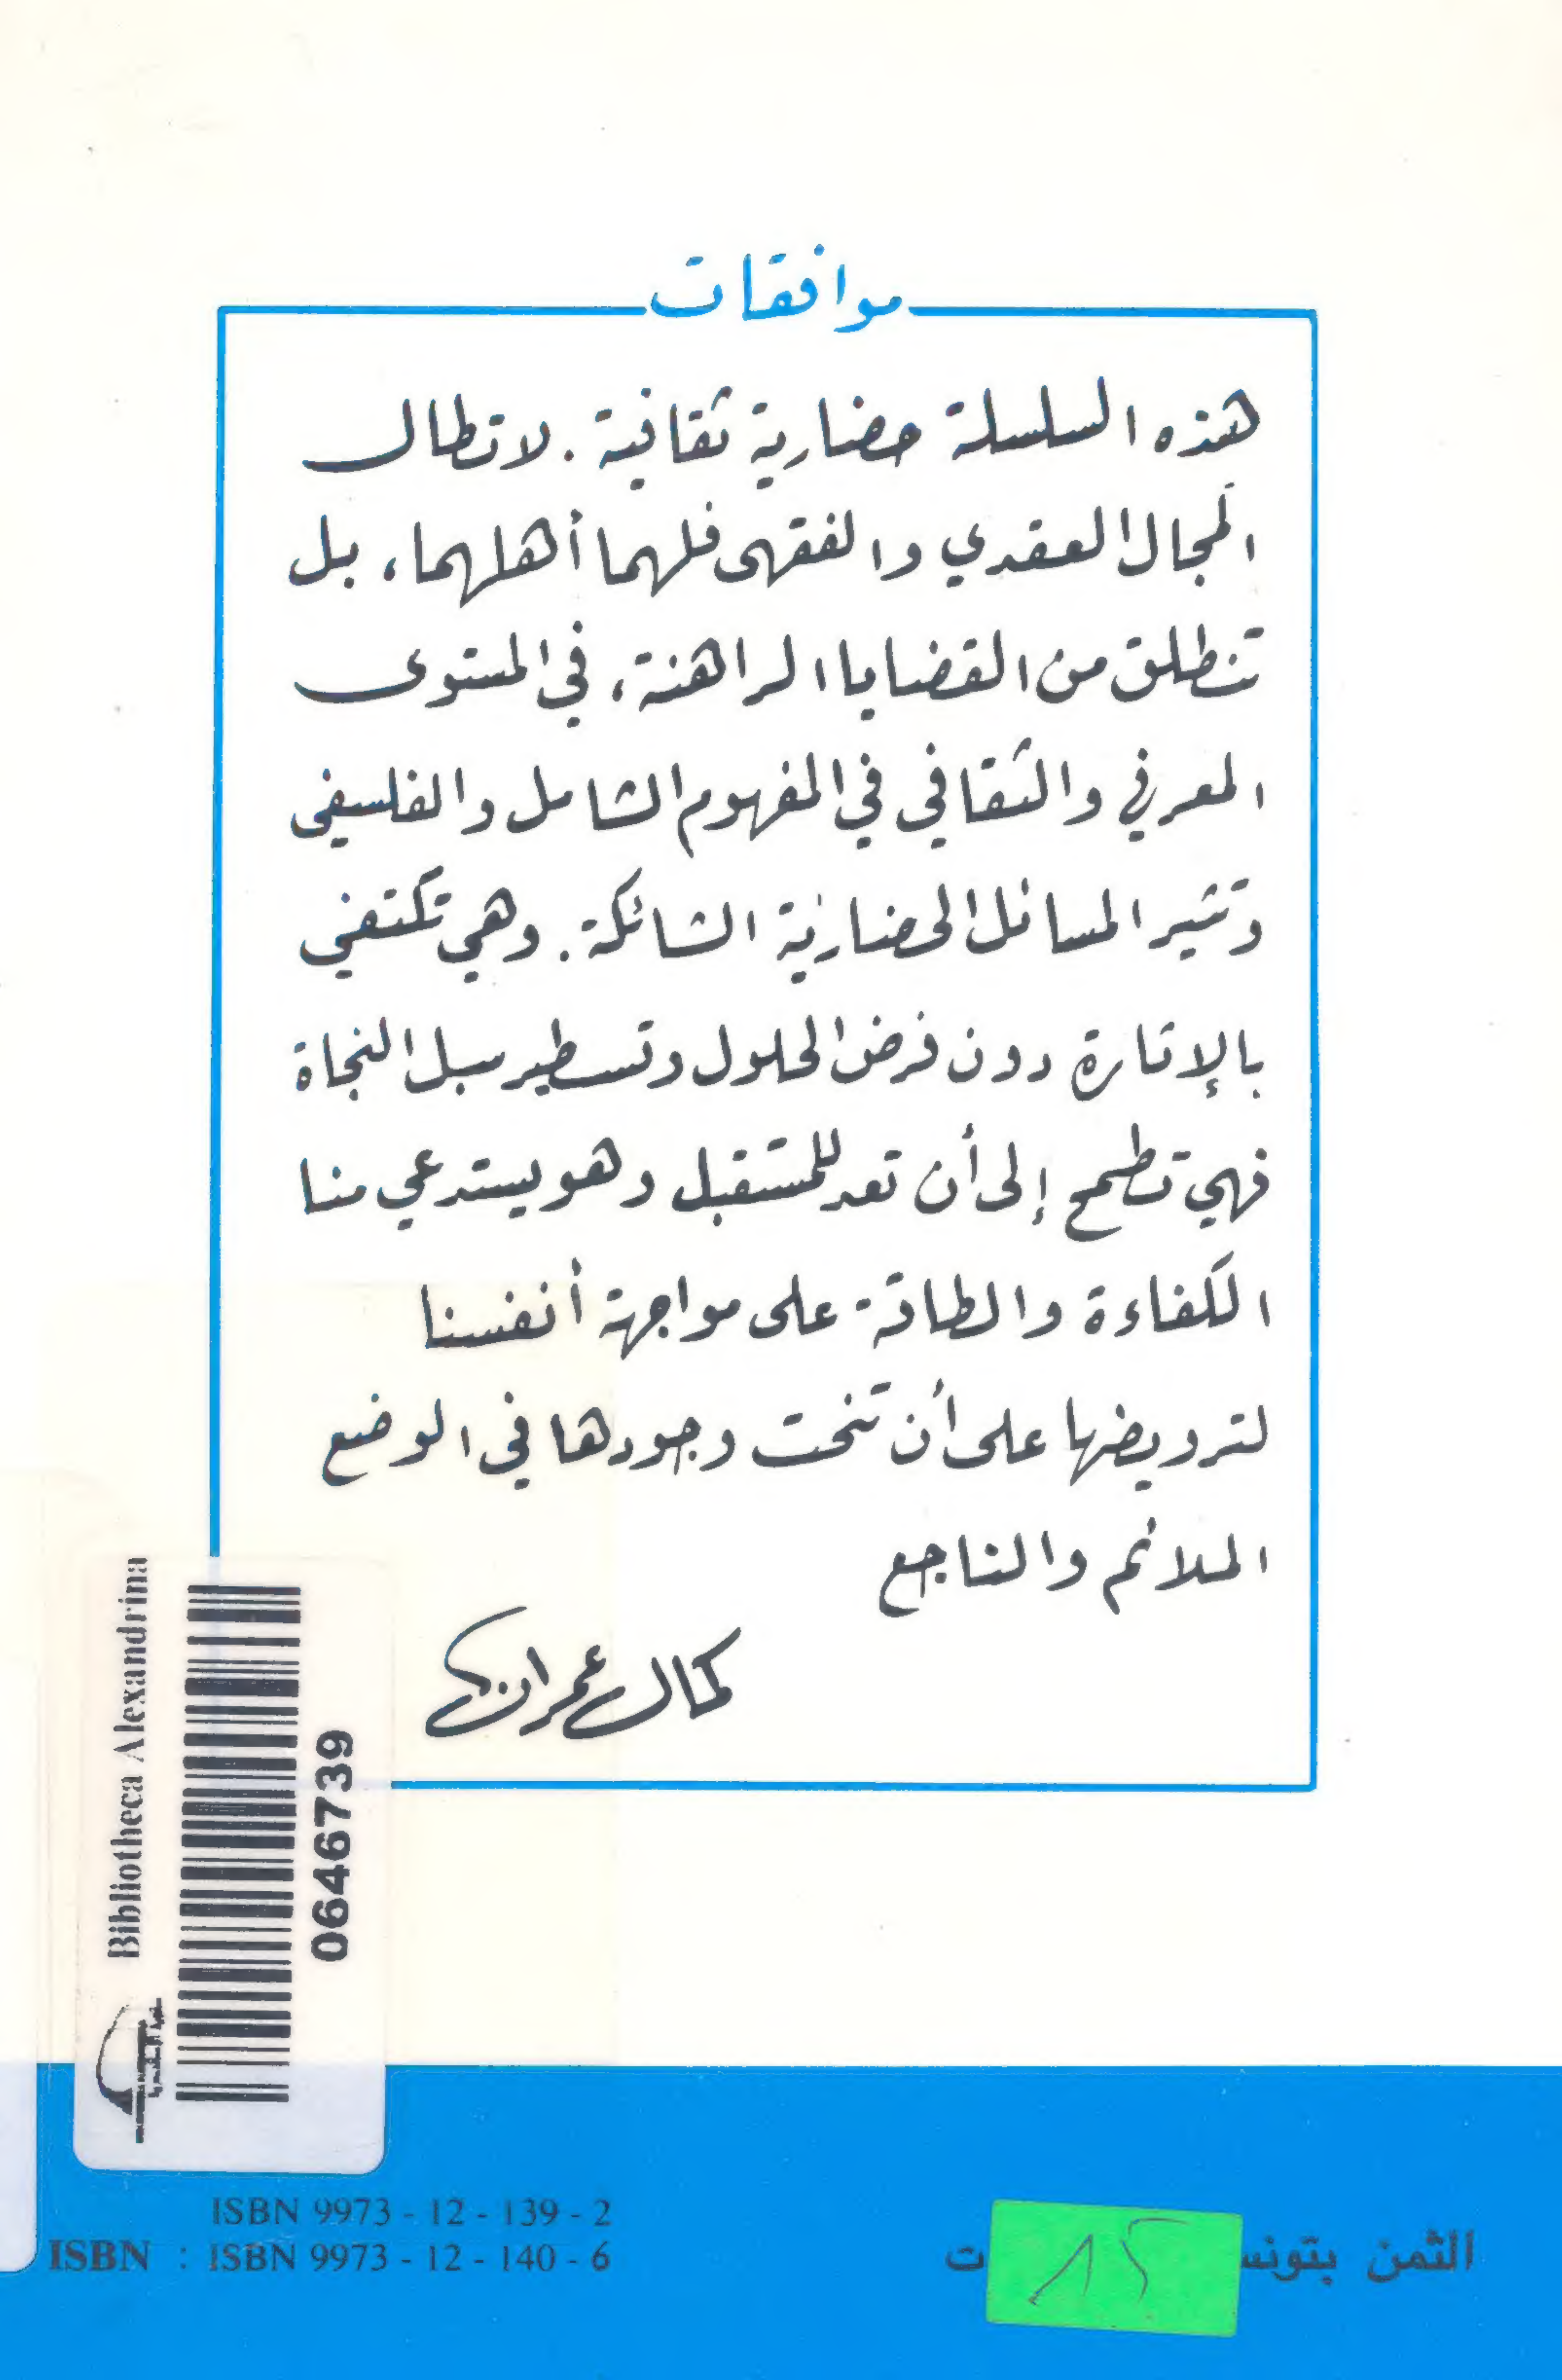 موافقات
هذه السلسلة حضارية ثقافية. لا تطال
المجال العقدي والفقهي فلهما أهلهما، بل
تنطلق من القضايا الراهنة، في المستوى
المعرفي والثقافي في المفهوم الشامل والفلسفي
وتثير المسائل الحضارية الشائكة. وهي تكتفي
بالإثارة دون فرض الحلول وتسطير سبل النجاة
فهي تطمح إلى أن تعد للمستقبل وهو يستدعي منا
الكفاءة والطاقة على مواجهة أنفسنا
لترويضها على أن تنحت وجودها في الوضع
الملائم والناجع
كمال عمران
Bibliotheca Alexandrina
0646739
ISBN 9973 - 12 - 139 - 2
ISBN : ISBN 9973 - 12 - 140 - 6
الثمن بتونس
ت